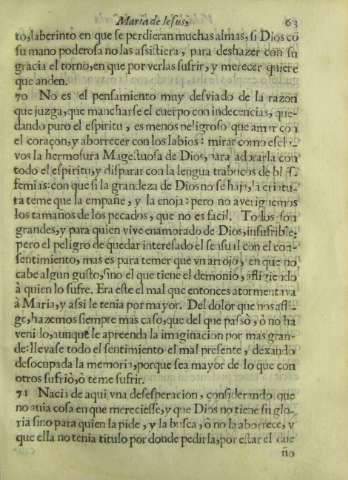 Maria de Iesus,
63
to, laberinto en que se perdieran muchas almas, si Dios cõ
su mano poderosa no las assistiera, para deshazer con su
gracia el torno, en que por verlas sufrir, y merecer quiere
que anden.
70 No es el pensamiento muy desviado de la razon
que juzga, que mancharse el cuerpo con indecencias, que-
dando puro el espiritu, es menos peligroso que amar con
el coraçon, y aborrecer con los labios: mirar como
vos la hermosura Magestuosa de Dios, para adorarla con
todo el espiritu, y disparar con la lengua trabucos de blas-
femias: con que si la grandeza de Dios no se baja, la criatu-
ra teme que la empañe, y la enoja: pero no averiguemos
los tamaños de los pecados, que no es facil. Todos son
grandes, y para quien vive enamorado de Dios, insufribles;
pero el peligro de quedar interesado el sensual con el con-
sentimiento, mas es para temer que vn arrojo, en que no
cabe algun gusto, sino el que tiene el demonio, afligiendo
à quien lo sufre. Era este el mal que entonces atormentava
à Maria, y assi le tenia por mayor. Del dolor que nos afli-
ge, hazemos siempre mas caso, que del que passò, ò no ha
venido, aunque le aprenda la imaginacion por mas gran-
de: llevase todo el sentimiento el mal presente, dexando
desocupada la memoria, porque sea mayor de lo que con
otros sufriò, ò teme sufrir.
71 Nacia de aqui vna desesperacion, considerando que
no auia cosa en que mereciesse, y que Dios no tiene su glo-
ria sino para quien la pide, y la busca, ò no la aborrece, y
que ella no tenia titulo por donde pedirla, por estar el due-
ño